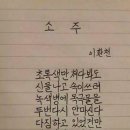 소주
이환천
초록색만 쳐다봐도
신물나고 속이쓰려
녹색병에 독극물을
두번다시 안마신다
다짐하고 있었건만